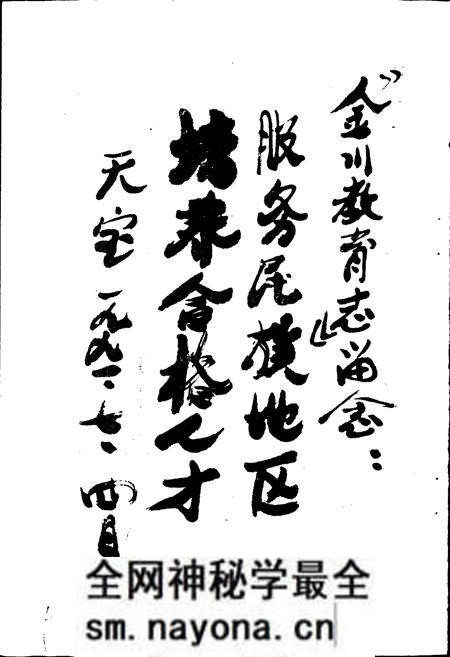 《金川教育志》留念：
服务民族地区
培养合格人才
天宝 一九九一、七、四日
全网神秘学最全
sm.nayona.cn